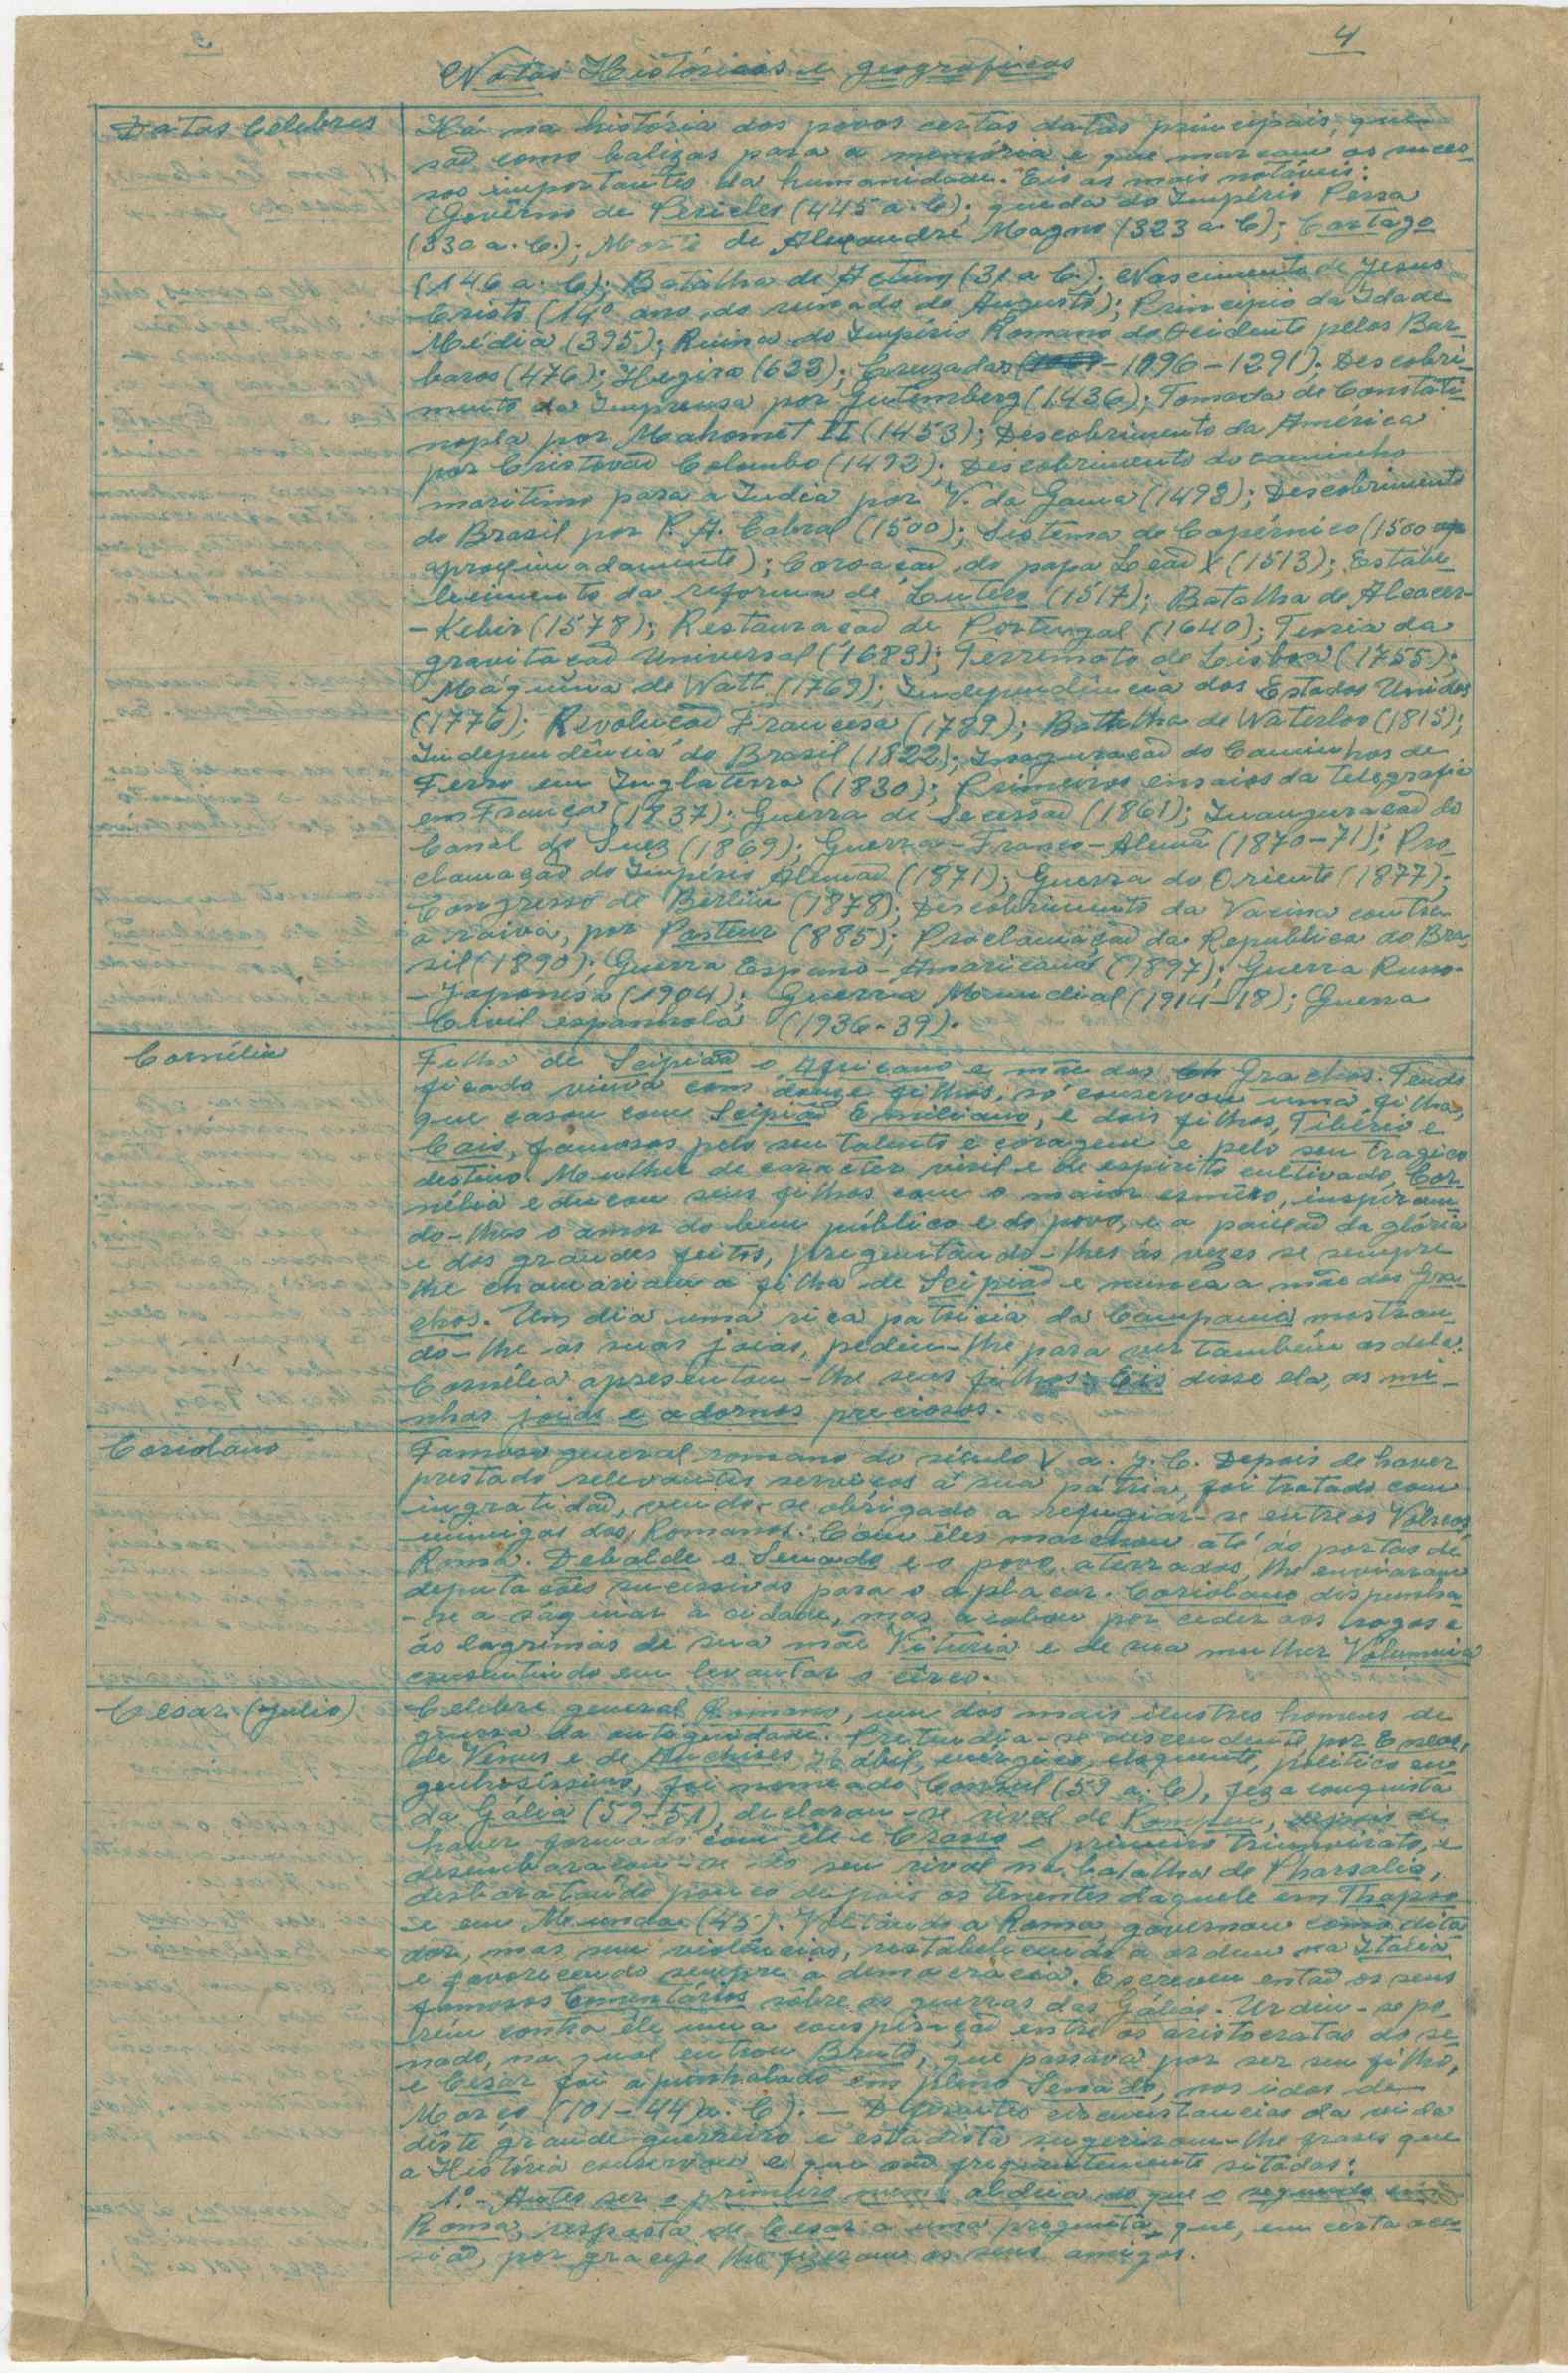 4
Notas Históricas e geograficas
Datas Célebres
Há na história dos povos certas datas principais, que
são como balizas para a memória e que marcam os suces-
sos importantes da humanidade. Eis as mais notáveis:
Govêrno de Pericles (445 a. C); queda do Império Persa
(330 a. C.); Morte de Alexandre Magno (323 a. C); Cartago
(146 a. C); Batalha de Actium (31 a C.); Nascimento de Jesus
Cristo (14º ano do reinado de Augusto); Principio da Idade
Média (395); Ruina do Império Romano do Ocidente pelos Bar-
baros (476); Hegira (622); Cruzadas (1096-1291). Descobri-
mento da Imprensa por Gutemberg (1436); Tomada de Constati-
nopla por Mahomet II (1453); Descobrimento da América
por Cristovão Colombo (1492); Descobrimento do caminho
maritimo para a India por V. da Gama (1498); Descobrimento
do Brasil por P. A. Cabral (1500); Sistema de Copérnico (1500 ap
aproximadamente); Coroação do papa Leão X (1513); Estabe-
lecimento da reforma de Lutero (1517); Batalha de Alcacer-
-Kebir (1578); Restauração de Portugal (1640); Teoria da
gravitação Universal (1683); Terremoto de Lisboa (1755);
Máquina de Watt (1769); Independência dos Estados Unidos
(1776); Revolução Francesa (1789); Batalha de Waterloo (1815);
Independência do Brasil (1822); Inauguração do Caminhos de
Ferro em Inglaterra (1830); Primeiros ensaios da telegrafia
em França (1837); Guerra de Secessão (1861); Inauguração do
Canal do Suez (1869); Guerra-Franco-Alemã (1870-71); Pro-
clamação do Império Alemão (1871); Guerra do Oriente (1877);
Congresso de Berlim (1878); Descobrimento da Vacina contra
a raiva, por Pasteur (885); Proclamação da Republica do Bra-
sil (1890); Guerra Espano-Americana (1897); Guerra Russo-
-Japonesa (1904); Guerra Mundial (1914-18); Guerra
Civil espanhola (1936-39).
Cornélia
Filha de Scipião o Africano e mãe dos Grachos. Tendo
ficado viuva com douze filhos, só conservou uma filha,
que casou com Scipião Emiliano, e dois filhos, Tibério e
Caio, famosos pelo seu talento e coragem e pelo seu tragico
destino. Meulher de caracter viril e de espirito cultivado, Cor-
nélia educou seus filhos com o maior esmêro, inspiran-
do-lhes o amor do bem público e do povo, e a paixão da glória
e dos grandes feitos, preguntando-lhes ás vezes se sempre
lhe chamariam a filha de Scipião e nunca a mãe dos Gra-
chos. Um dia uma rica patricia da Campania mostran-
do-lhe as suas joias, pediu-lhe para ver também as dela.
Cornélia apresentou-lhe seus filhos: Eis disse ela, as mi-
nhas joias e adornos preciosos.
Coriolano
Famoso general romano do século V a. J. C. Depois de haver
prestado relevantes serviços á sua pátria, foi tratado com
ingratidão, vendo-se obrigado a refugiar-se entre os Volscos,
inimigos dos Romanos. Com êles marchou até ás portas de
Roma. Debalde o Senado e o povo, aterrados, lhe enviaram
deputações sucessivas para o aplacar. Coriolano dispunha-
-se a saquear a cidade, mas acabou por ceder aos rogos e
ás lagrimas de sua mãe Vituria e de sua mulher Volumnia
consentindo em levantar o cêrco.
Cesar (Julio)
Celebre general Romano, um dos mais ilustres homens de
guerra da antiguidade. Pretendia-se descendente por Eneas,
de Venus e de Anchises. Habil, energico, eloquente, politico en-
genhosissimo, foi nomeado Consul (59 a. C), fez a conquista
da Gália (59-51), declarou-se rival de Pompeu, depois de
haver formado com êle e Crasso o primeiro triumvirato, e
desembaraçou-se do seu rival na batalha de Pharsalia,
desbaratando pouco depois os tenentes daquele em Thapso
e em Munda (45). Voltando a Roma governou como dita
dor, mas sem violências, restabelecendo a ordem na Itália
e favorecendo sempre a democracia. Escreveu então os seus
famosos Comentários sôbre as guerras das Gálias. Urdiu-se po-
rém contra êle uma conspiração entre os aristocratas do se-
nado, na qual entrou Bruto, que passava por ser seu filho,
e Cesar foi apunhalado em pleno Senado, nos idos de
Março (101-44 a. C). — Diferentes circunstancias da vida
dêste grande guerreiro e estadista sugeriram-lhe frases que
a História conservou e que são frequentemente sitadas:
1º- Antes ser o primeiro numa aldeia do que o segundo em
Roma, resposta de Cesar a uma pregunta, que, em certa oca-
sião, por gracejo lhe fizeram os seus amigos.